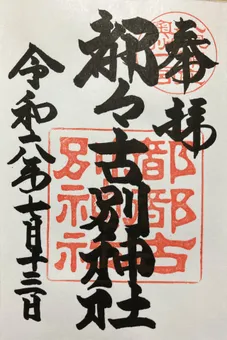 奉拝
都々古別神社
令和六年十月十三日
都都古
別神社